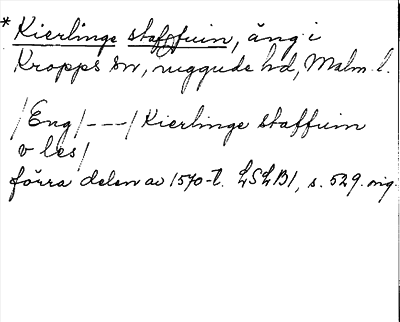 * Kierlinge staffuin, äng i
Kropps sn, Luggude hd, Malm. l.
/Eng/ --- / Kierlinge staffuin
v les/
förra delen av 1570-t. LSLB1, s. 529. orig.